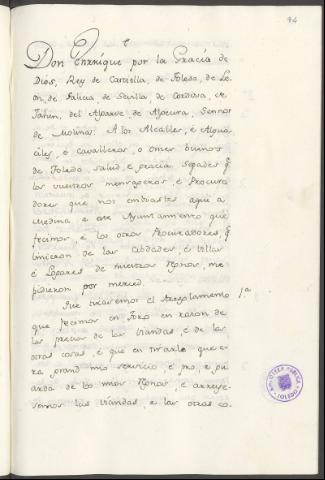 94
Don Enrrique por la Gracia de
Dios, Rey de Castiella, de Toledo, de Le
on, de Galicia de Sevilla, de Cordova, de
Jahen, del Algarve, de Algecira, Sennor
de Molina: A los Alcalles, é Algua
ciles, é Cavalleros, é Omes buenos
de Toledo salud, e gracia. Sepades q
los vuestros mensageros, é Procura
dores que nos embiastes aqui á
Medina á este Ayuntamiento que
fecimos, é los otros Procuradores, q
vinieron de las Cibdades, é Villas
é Logares de nuestros Regnos, me
pidieron por merced.
Que tirasemos el Arreglamento 1.ª
que fecimos en Toro en razon de
los precios de las viandas, é de las
otras cosas, é que en tirarlo que e-
ra grand mio servicio, é pro, e gu
arda de los mios Regnos, é
las viandas, e las otras co-
BIBLIOTECA PUBLICA
TOLEDO